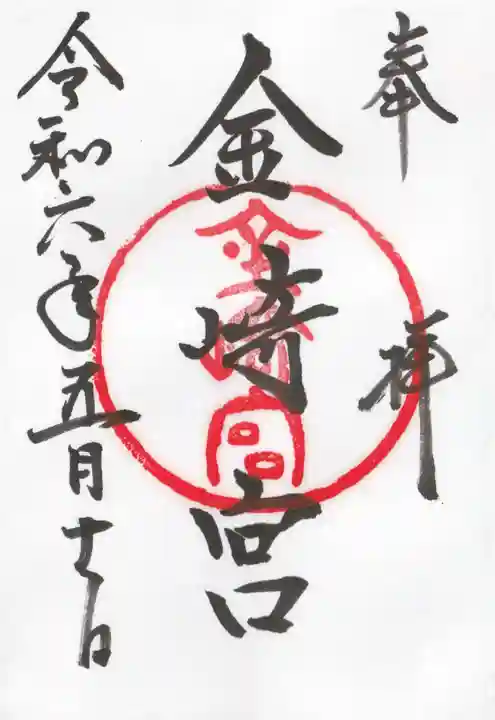 奉拝
金崎宮
金崎宮
令和六年五月十七日